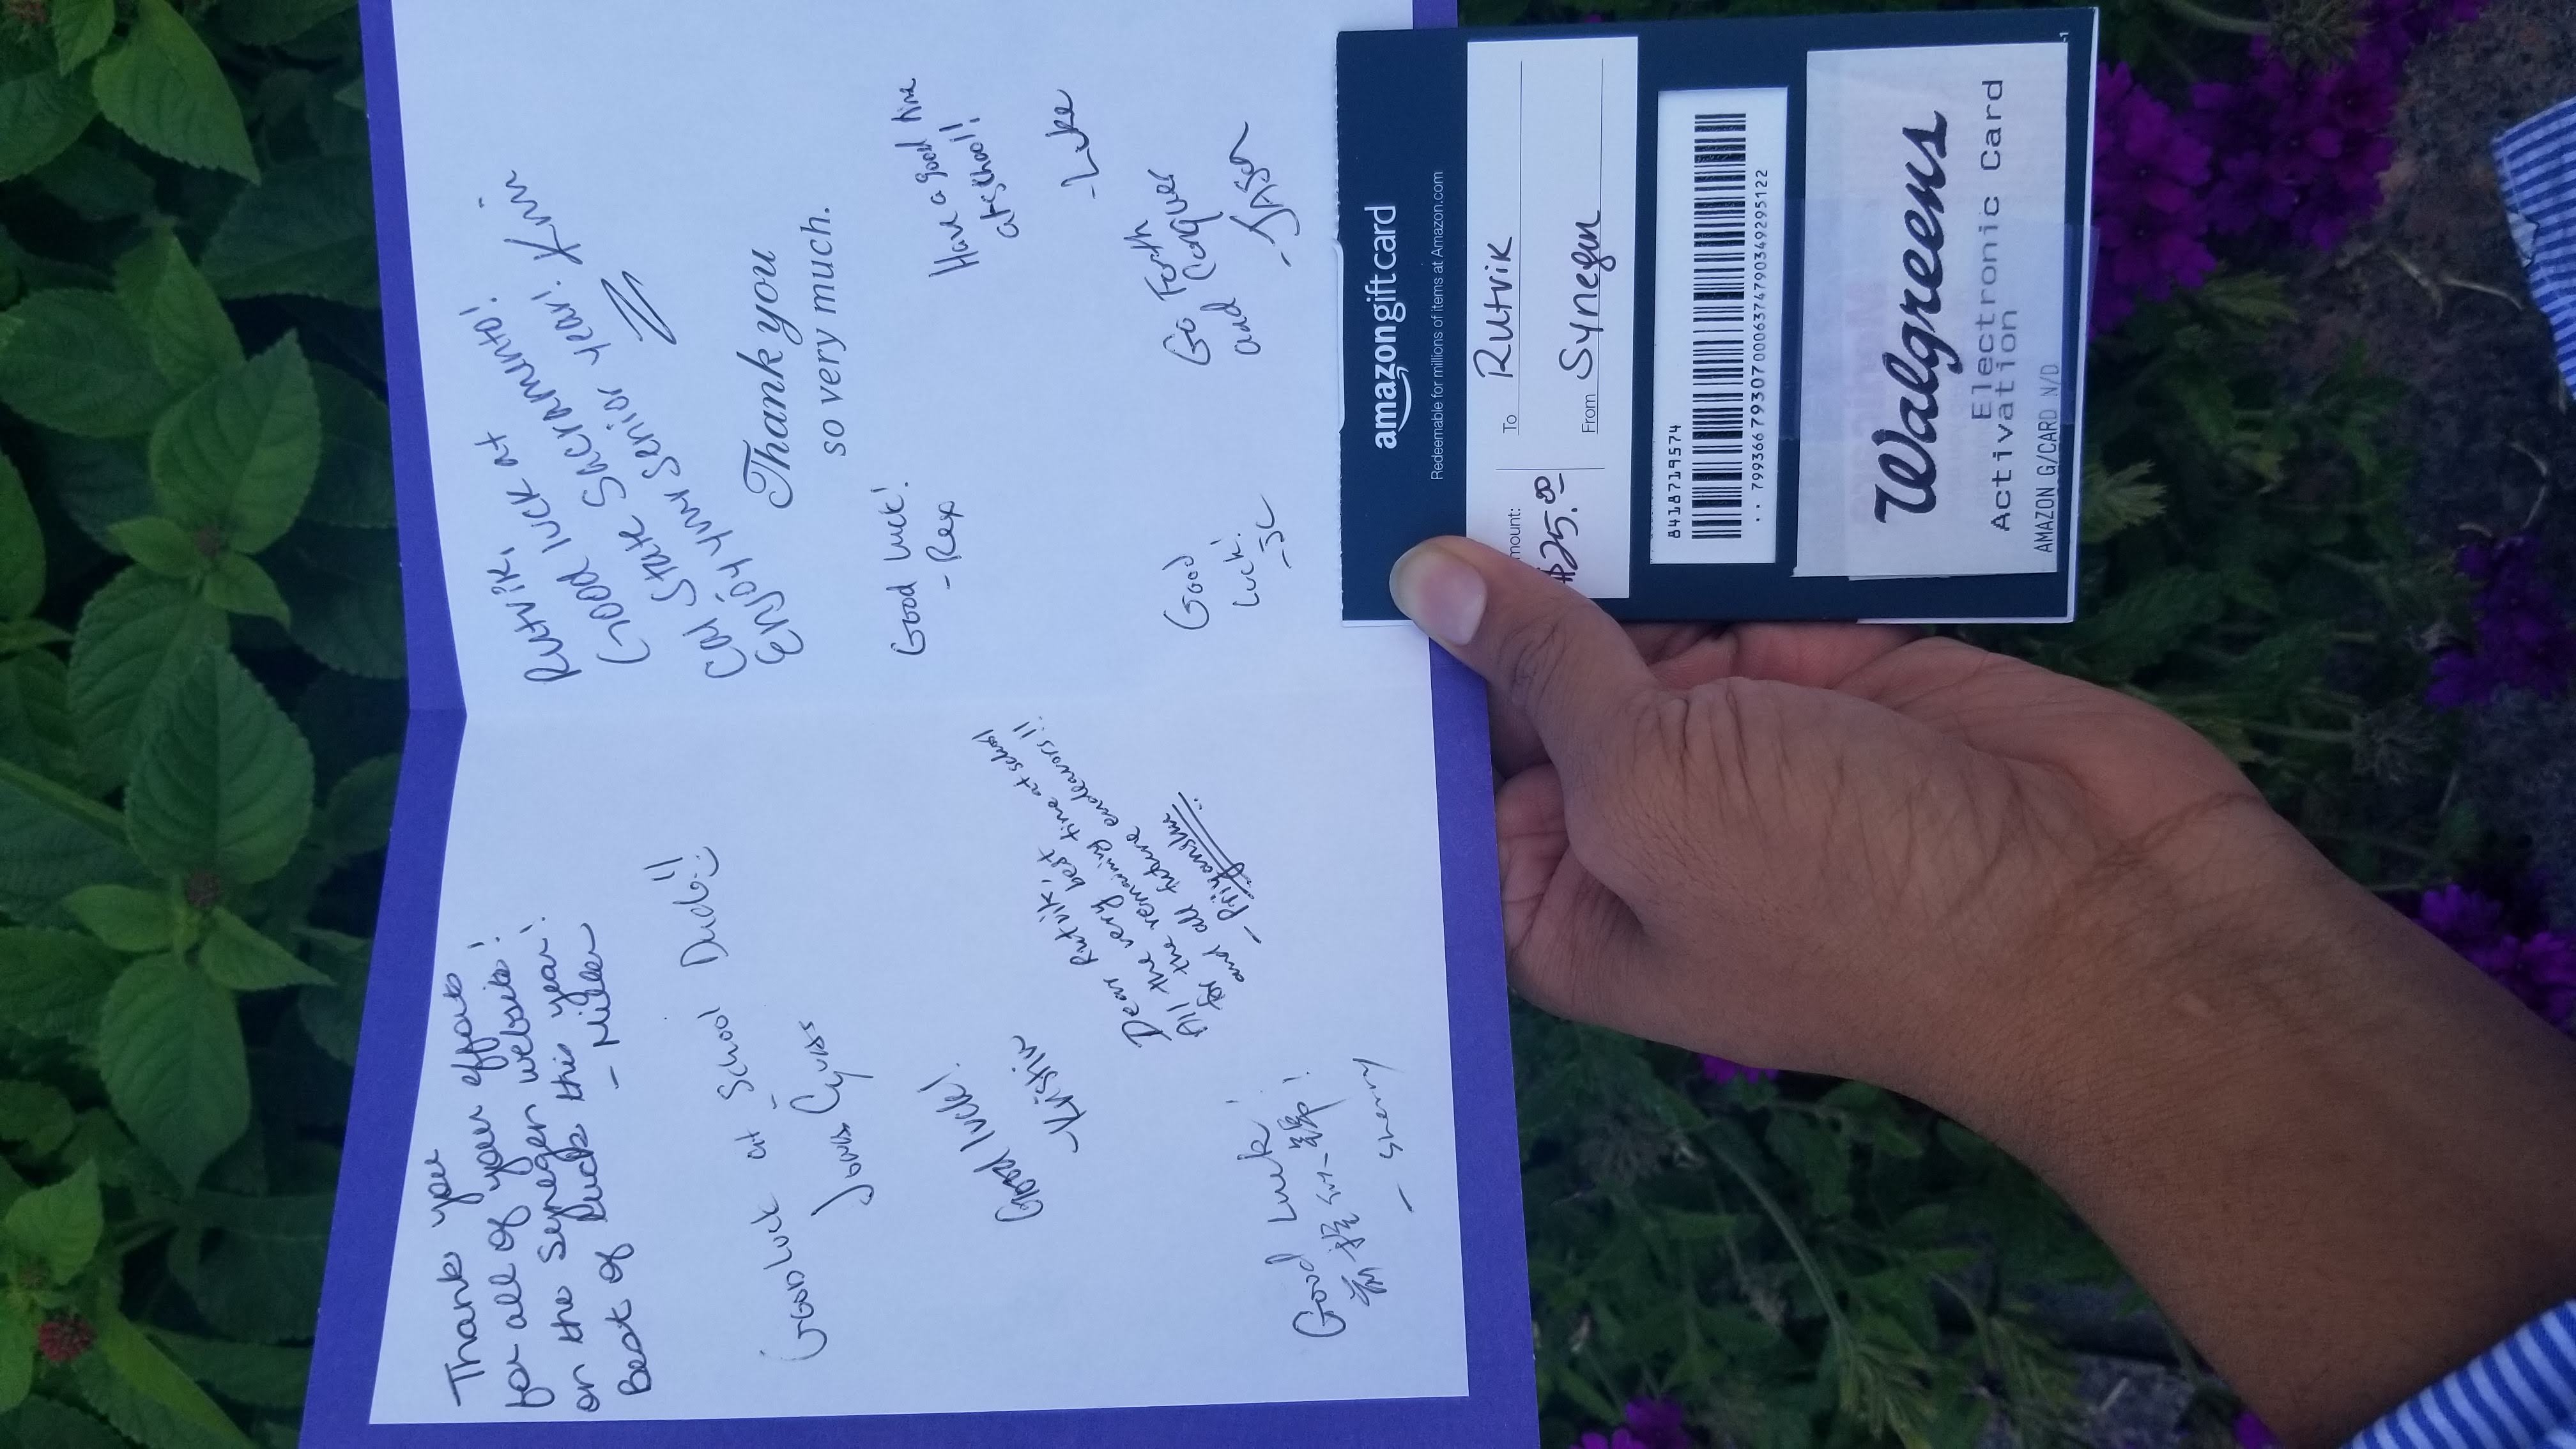 Thank you
for all of your efforts
on the Synegen website!
Best of luck this year!
- Miller
Good Luck at School Dude!!
Jonas
Good luck!
- Kristin
Dear Rutvik,
All the very best
for the remaining time at school
and all future endeavors!!
- Priyanshu
Good Luck!
前程似锦!
- Sherry
Rutvik,
Good luck at
Cal State Sacramento!
Enjoy your senior year!
Thank you
so very much.
Good luck!
- Rex
Have a good time
at school!
- Luke
Good
Luck!
- JC
Go Forth
and Conquer
- JASON
amazon gift card
Redeemable for millions of items at Amazon.com
mount:
$25.00
To Rutvik
From Synegen
8418719574
.. 799366 79307 0006374790349295122
Walgreens
Electronic Card
Activation
AMAZON G/CARD N/D
-1